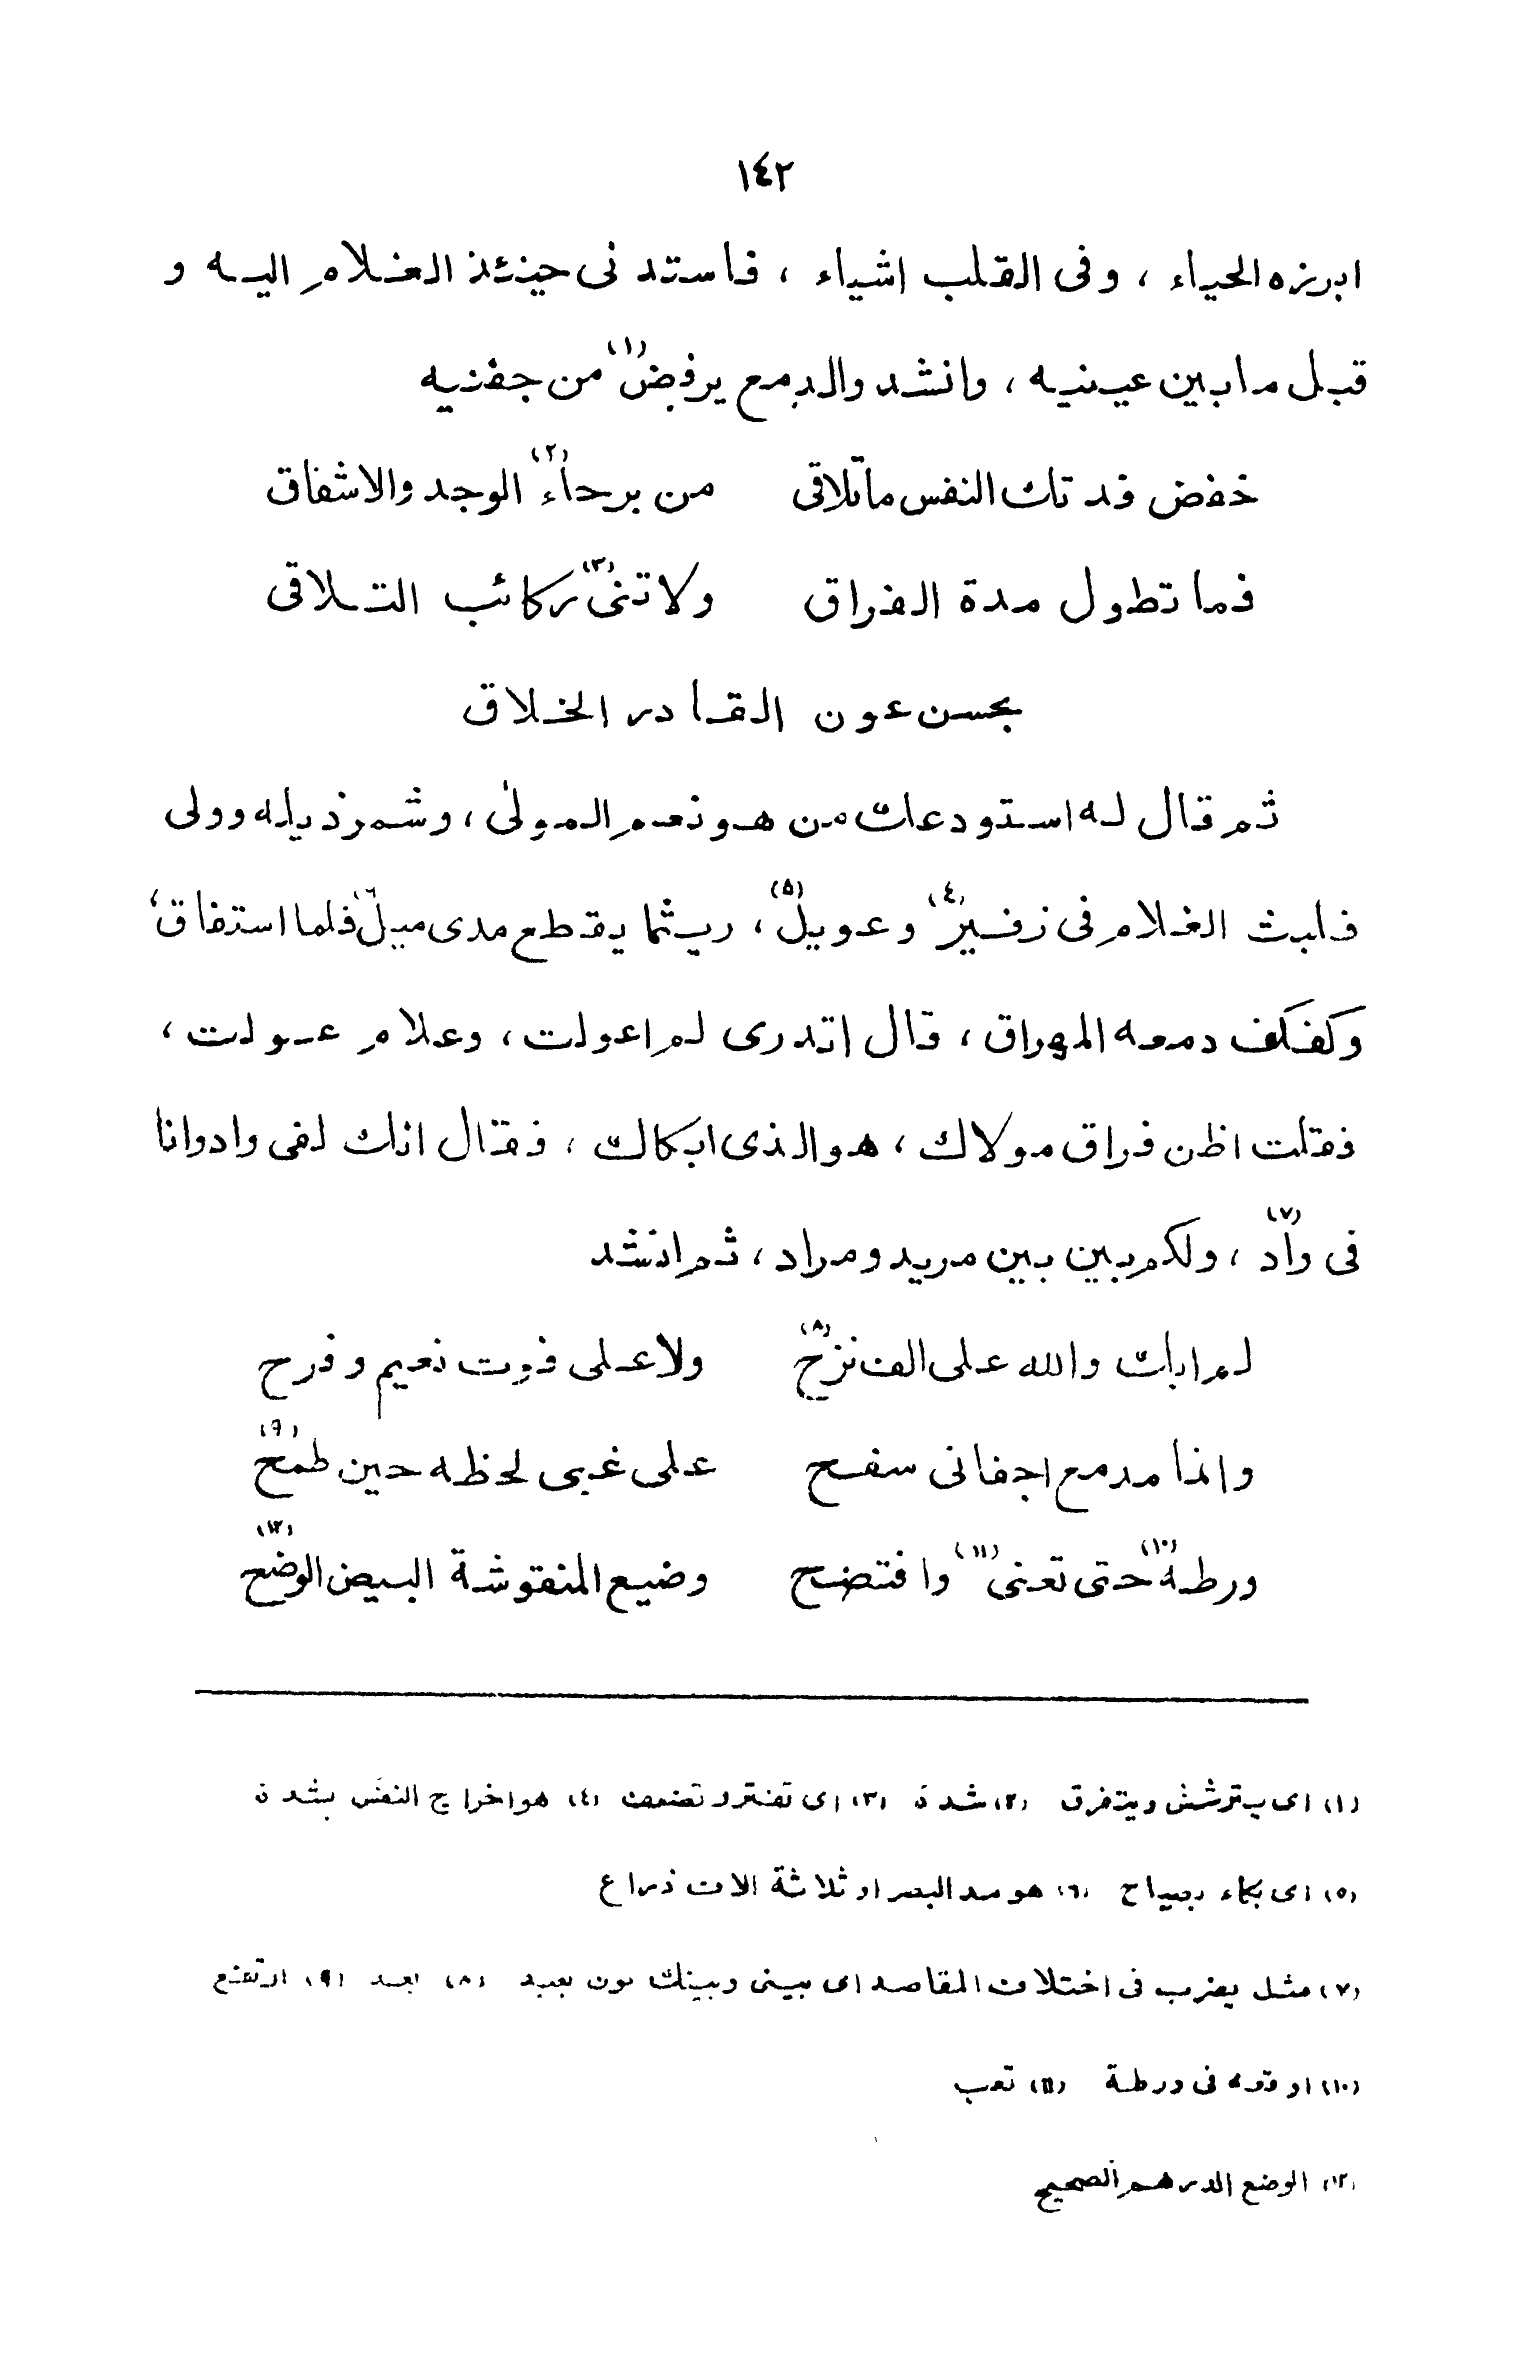 ١٤٢
ابرزه الحياء ، وفى القلب اشياء ، فاستدنى حينئذ الغلام اليه و
قبل مابين عينيه ، وانشد والدمع يرفض(١) من جفنيه
خفض فدتك النفس ماتلاقى من برحاء(٢) الوجد والاشفاق
فما تطول مدة الفراق ولا تنى(٣) ركائب التلاقى
بحسن عون القادر الخلاق
ثم قال له استودعك من هو نعم المولى ، وشمر ذيله وولى
فلبث الغلام فى زفير(٤) وعويل(٥) ، ريثما يقطع مدى ميل(٦) فلما استفاق ،
وكفكف دمعه المهراق ، قال اتدرى لم اعولت ، وعلام عولت ،
فقلت اظن فراق مولاك ، هو الذى ابكاك ، فقال انك لفى واد وانا
فى واد(٧) ، ولكم بين بين مريد ومراد ، ثم انشد
لم ابك والله على الف نزح(٨) ولا على فوت نعيم وفرح
وانما مدمع اجفانى سفح على غبى لحظه حين طمح(٩)
ورطه(١٠) حتى تعنى(١١) وافتضح وضيع المنقوشة البيض الوضح(١٢)
(١) اى يترشش ويتفرق (٢) شدة (٣) اى تفتر وتضعف (٤) هو اخراج النفس بشدة
(٥) اى بكاء بصياح (٦) هو مد البصر او ثلاثة الاف ذراع
(٧) مثل يضرب فى اختلاف المقاصد اى بينى وبينك بون بعيد (٨) بعد (٩) ارتفع
(١٠) اوقعه فى ورطة (١١) تعب
(١٢) الوضح الدرهم الصحيح